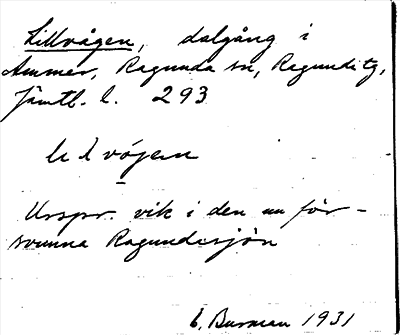 Lillvågen, dalgång i
Ammer, Ragunda sn, Ragunda tg,
Jämtl. l. 293
vågen
Urspr. vik i den nu för-
svunna Ragundasjön
E. Burman 1931